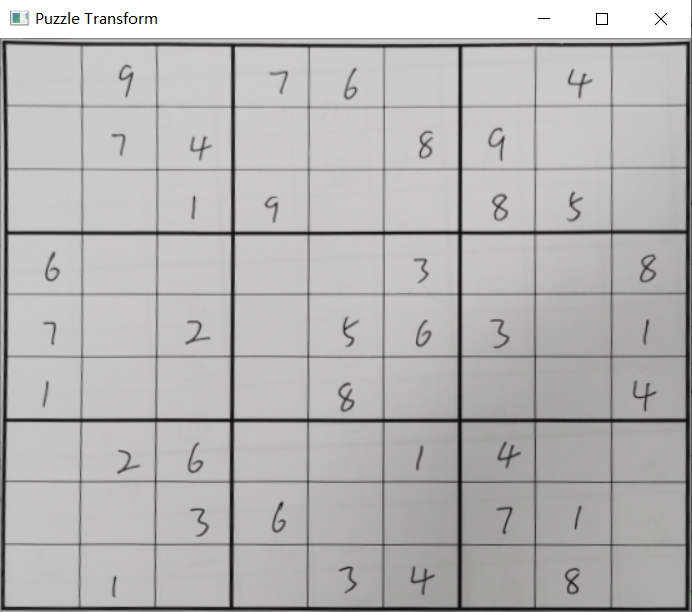 Puzzle Transform
9 7 6 4
7 4 8 9
1 9 8 5
6 3 8
7 2 5 6 3 1
1 8 4
2 6 1 4
3 6 7 1
1 3 4 8